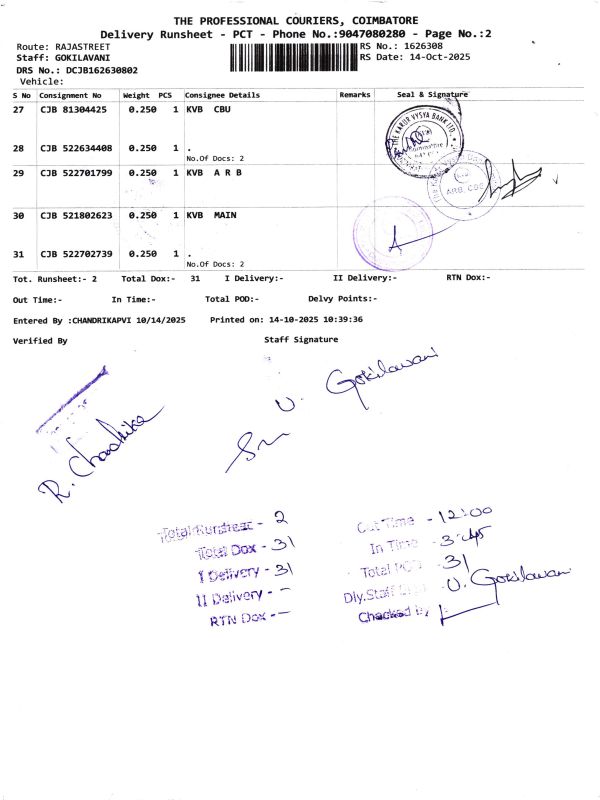 THE PROFESSIONAL COURIERS, COIMBATORE
Delivery Runsheet - PCT - Phone No.:9047080280 - Page No.:2
Route: RAJASTREET RS No.: 1626308
Staff: GOKILAVANI RS Date: 14-Oct-2025
DRS No.: DCJB162630802
Vehicle:
S No Consignment No Weight PCS Consignee Details Remarks Seal & Signature
27 CJB 81304425 0.250 1 KVB CBU
THE KARUR VYSYA BANK LTD.
28 CJB 522634408 0.250 1 .
No.Of Docs: 2
29 CJB 522701799 0.250 1 KVB A R B
ARB, CBE
30 CJB 521802623 0.250 1 KVB MAIN
31 CJB 522702739 0.250 1 .
No.Of Docs: 2
Tot. Runsheet:- 2 Total Dox:- 31 I Delivery:- II Delivery:- RTN Dox:-
Out Time:- In Time:- Total POD:- Delvy Points:-
Entered By :CHANDRIKAPVI 10/14/2025 Printed on: 14-10-2025 10:39:36
Verified By Staff Signature
U. Gokilavani
R. Chandrika
Total Runsheet - 2 Out Time - 12:00
Total Dox - 31 In Time - 3:45
I Delivery - 31 Total POD - 31
II Delivery - - Dly.Staff U. Gokilavani
RTN Dox - - Checked by